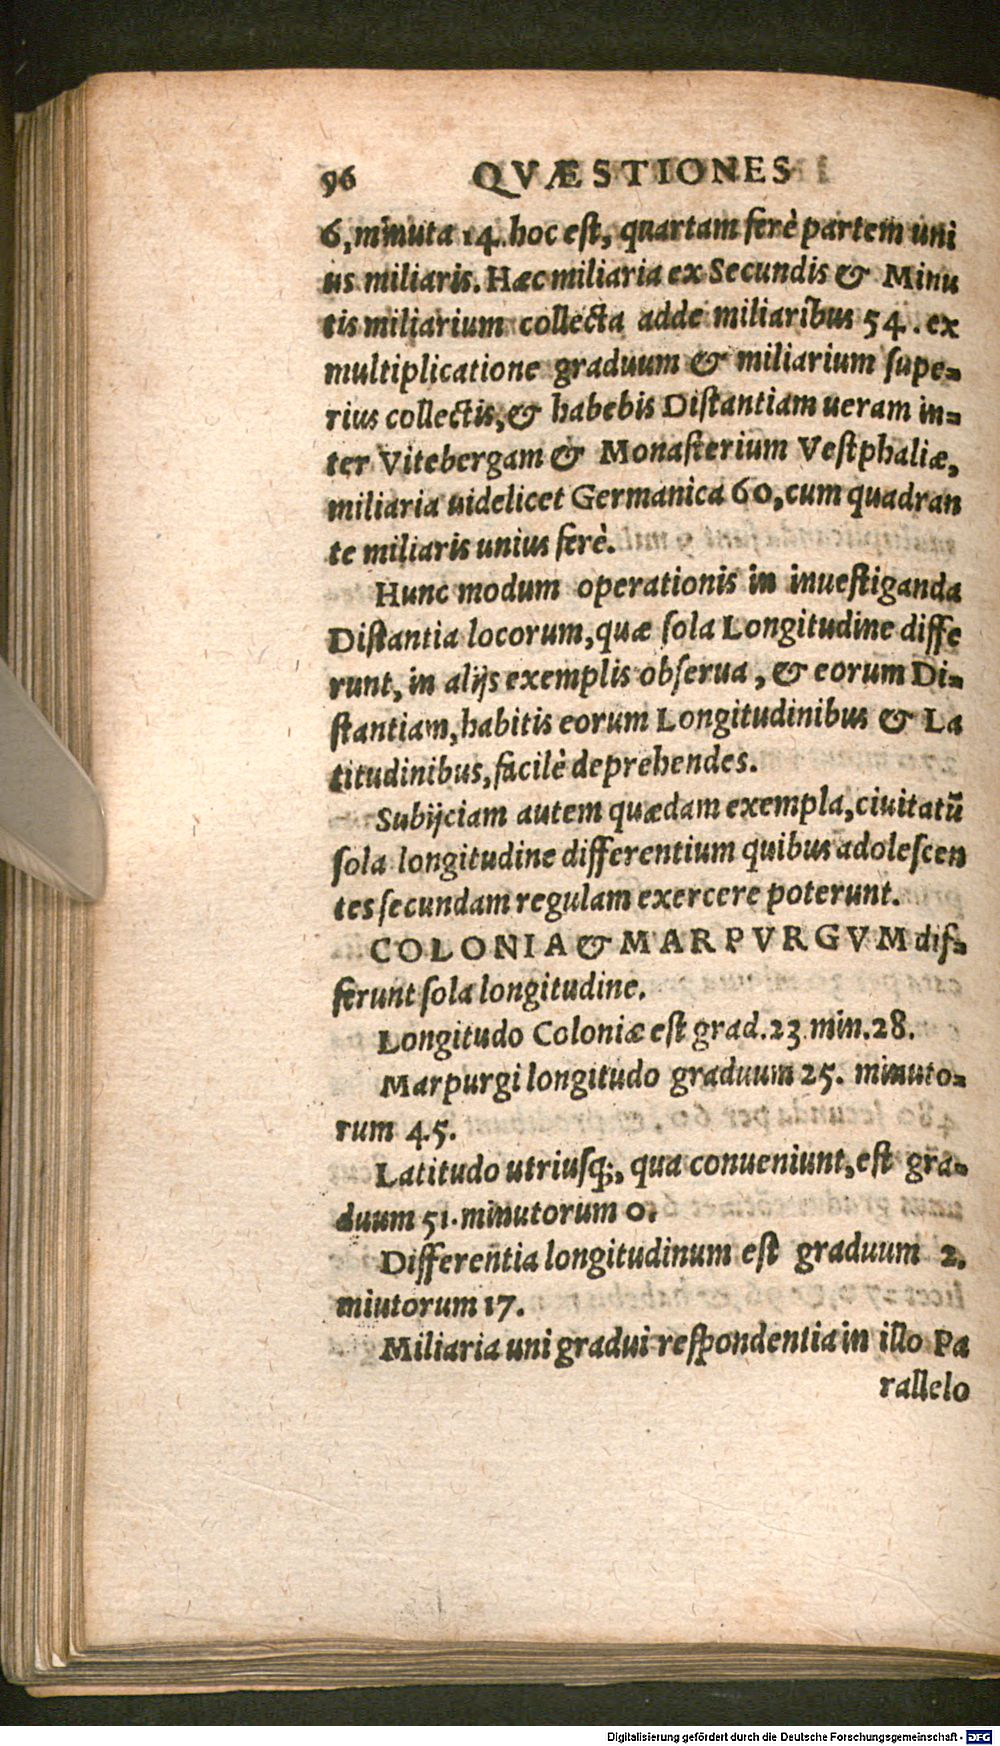 96 QVÆSTIONES
6, minuta 14. hoc eſt, quartam ferè partem uni
us miliaris. Hæc miliaria ex Secundis & Minu
tis miliarium collecta adde miliaribus 54. ex
multiplicatione graduum & miliarium ſupe-
rius collectis, & habebis Diſtantiam ueram in-
ter Vitebergam & Monaſterium Veſtphaliæ,
miliaria uidelicet Germanica 60, cum quadran
te miliaris unius ferè.
Hunc modum operationis in inueſtiganda
Diſtantia locorum, quæ ſola Longitudine diffe
runt, in alijs exemplis obſerua, & eorum Di-
ſtantiam, habitis eorum Longitudinibus & La
titudinibus, facilè deprehendes.
Subijciam autem quædam exempla, ciuitatū
ſola longitudine differentium quibus adoleſcen
tes ſecundam regulam exercere poterunt.
COLONIA & MARPVRGVM dif-
ferunt ſola longitudine.
Longitudo Coloniæ eſt grad. 23 min. 28.
Marpurgi longitudo graduum 25. minuto-
rum 45.
Latitudo utriuſq;, qua conueniunt, eſt gra-
duum 51. minutorum 0.
Differentia longitudinum eſt graduum 2.
miutorum 17.
Miliaria uni gradui reſpondentia in illo Pa
rallelo
Digitalisierung gefördert durch die Deutsche Forschungsgemeinschaft - DFG